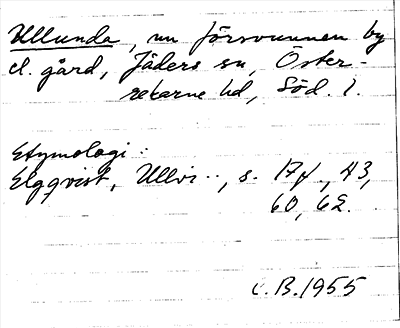 Ullunda, nu försvunnen by
el. gård, Jäders sn, Öster-
rekarne hd, Söd. l.
Etymologi:
Elgqvist, Ullvi.., s. 17f., 43,
60, 62.
C.B. 1955